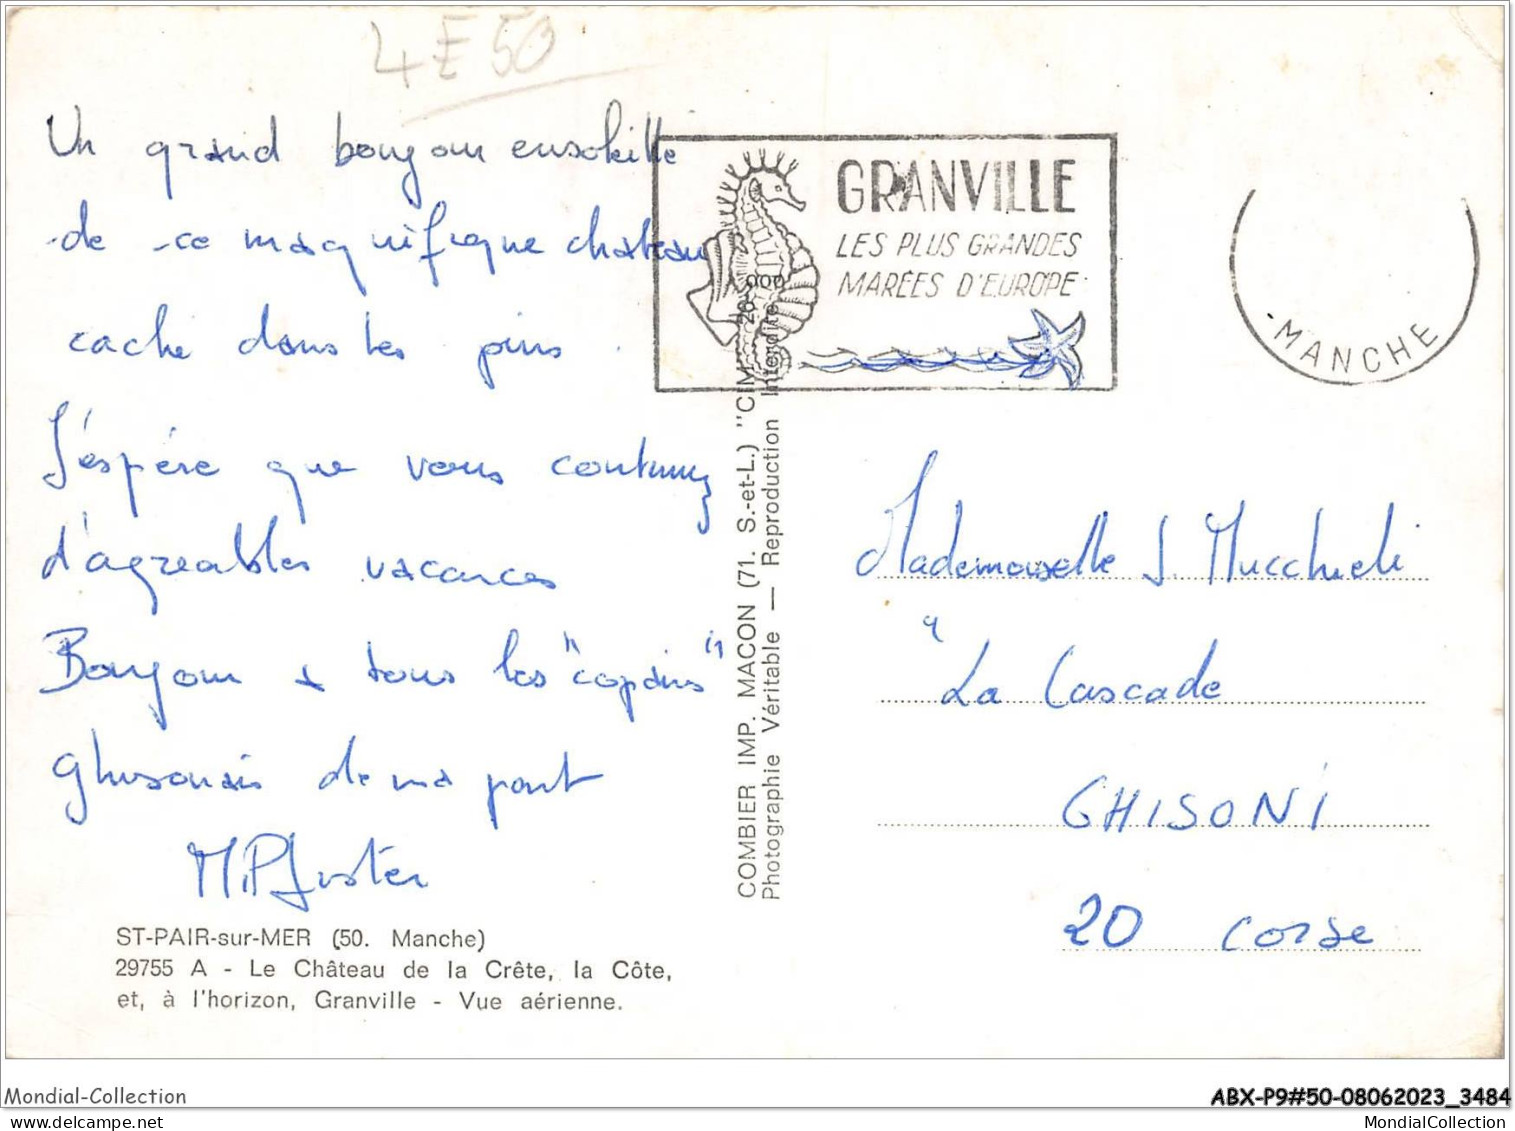 4E50
Un grand bonjour ensoleillé
de ce magnifique chateau
caché dans les pins.
J'éspére que vous continuez
d'agreables vacances
Bonjour a tous les "copains"
ghisonais de ma part
ST-PAIR-sur-MER (50. Manche)
29755 A - Le Château de la Crête, la Côte,
et, à l'horizon, Granville - Vue aérienne.
COMBIER IMP. MACON (71. S.-et-L.) "CIM"
Photographie Véritable — Reproduction Interdite
GRANVILLE
LES PLUS GRANDES
MARÉES D'EUROPE
MANCHE
Mademoiselle J Mucchieli
"La Cascade
GHISONI
20 Corse
Mondial-Collection
ABX-P9#50-08062023_3484
MondialCollection